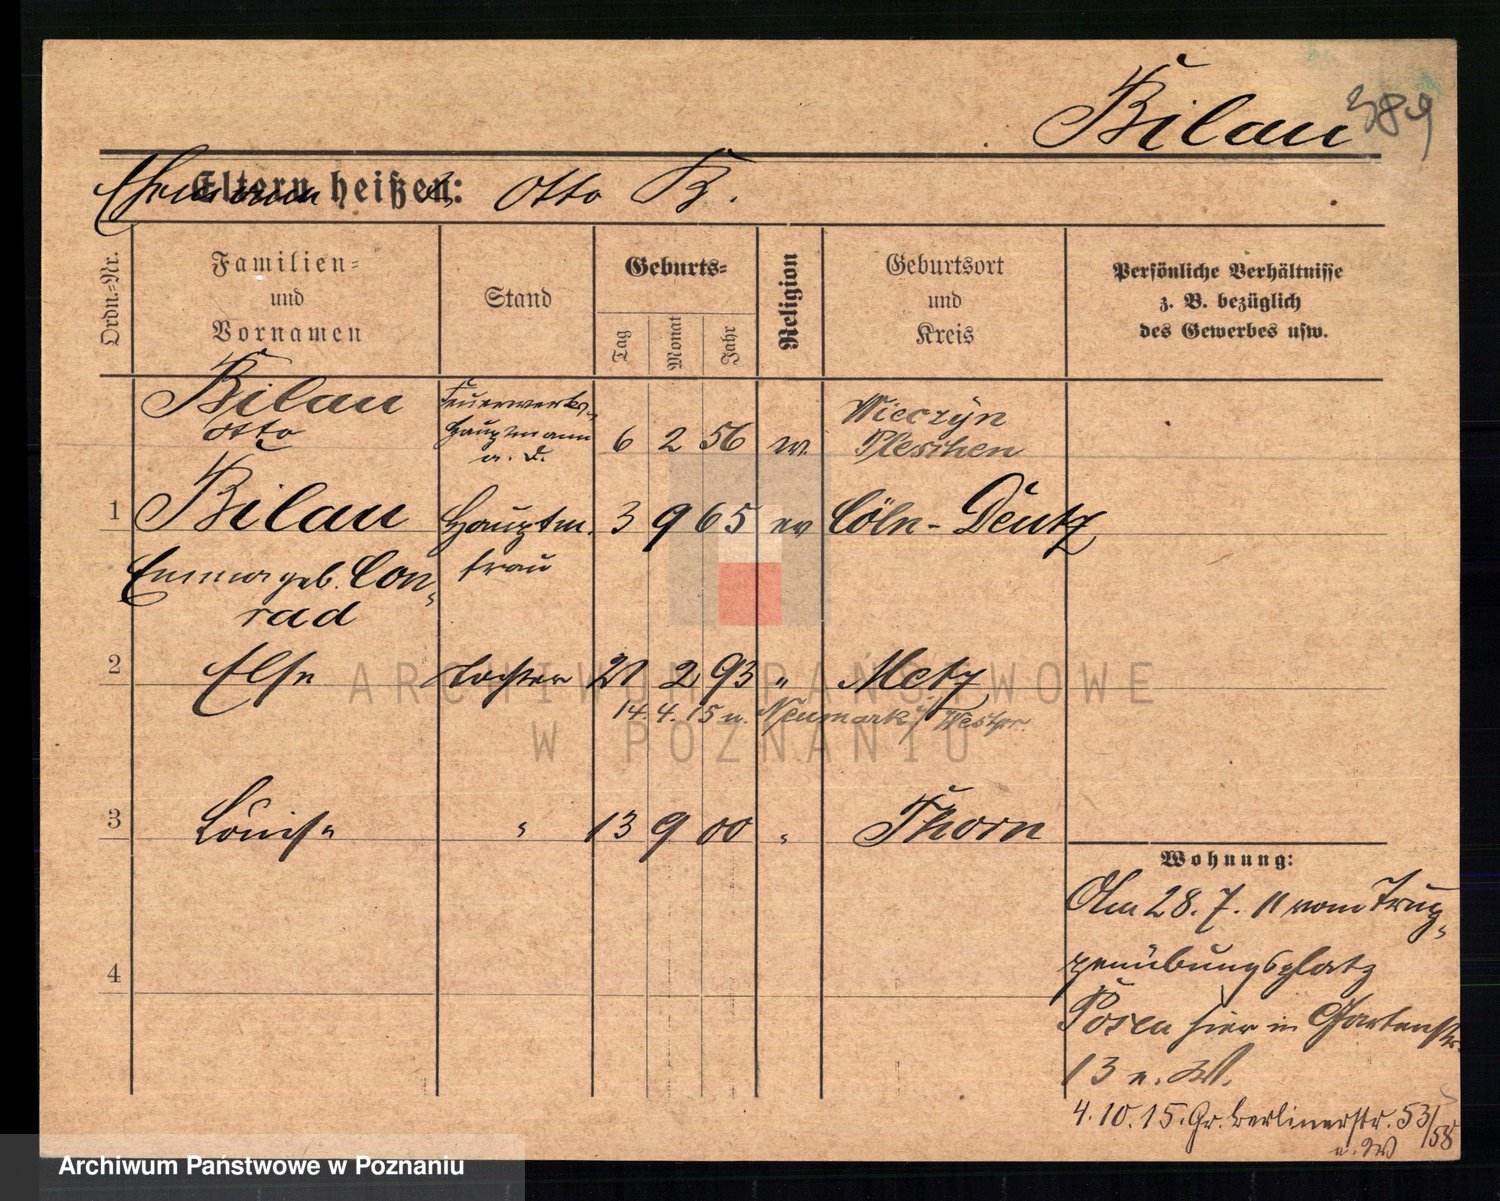 Bilau 389
Eltern heißen:
Ehemann Otto B.
Ordn.-Nr.
Familien-
und
Vornamen
Stand
Geburts-
Tag
Monat
Jahr
Religion
Geburtsort
und
Kreis
Persönliche Verhältnisse
z. B. bezüglich
des Gewerbes usw.
Bilau
Otto
Feuerwerks-
Hauptmann
a. D.
6 2 56 ev.
Wieczyn
Pleschen
1 Bilau Hauptm. 3 9 65 ev Cöln-Deutz
Emma geb. Con- frau
rad
2 Else Tochter 21 2 93 " Metz
14.4.15 n. Neumark / Westpr.
3 Louise " 13 9 00 " Thorn
Wohnung:
Am 28.7.11 vom Trup-
penübungsplatz
4
Posen hier in Gartenstr.
13 n. W.
4.10.15. Gr. Berlinerstr. 53/58
n. W
ARCHIWUM PAŃSTWOWE
W POZNANIU
Archiwum Państwowe w Poznaniu